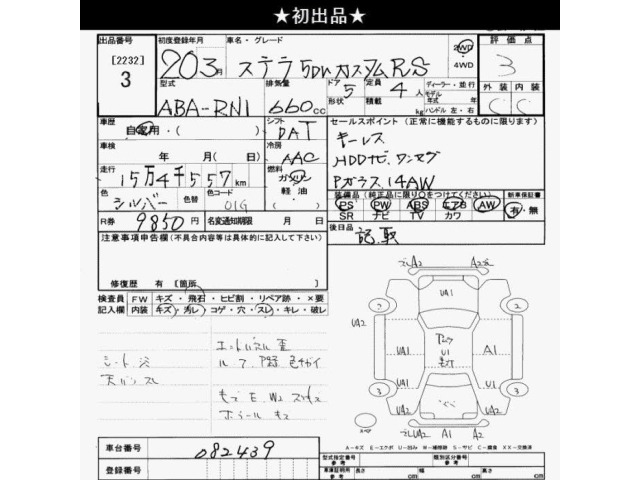 ★初出品★
出品番号 [2232] 3
初度登録年月 20 3月
車名・グレード ステラ 5DW カスタムRS
2WD 4WD
評価点 3
型式 ABA-RN1
排気量 660cc
ドア 形状 5
定員 積載 4人 kg
ディーラー・並行
モデル 年式 年
ハンドル 左・右
外装 C 内装 C
車歴 自家用・( )
シフト DAT
セールスポイント (正常に機能するものに限ります)
キーレス
HDDナビ、ワンセグ
Pガラス 14AW
車検 年 月(日)
冷房 AAC
走行 15万4千557km
燃料 ガソリン 軽油
色 シルバー 色替
色コード 01G
装備品 (純正品に限り○をつけてください)
PS PW ABS エアB AW
SR ナビ TV カワ
新車保証書 有・無
R券 9850円
名変通知期限 月 日
後日品 記、取
注意事項申告欄 (不具合内容等は具体的に記入して下さい)
修復歴 有 [箇所
検査員記入欄
FW キズ・飛石・ヒビ割・リペア跡・×要
内装 キズ・汚レ・コゲ・穴・スレ・キレ・破レ
A2 A2
UA1
2 2
UA2
UA1 U1 A1
UA1 U1
3 3
UA2 UA2
UA2 A1 A2
A-キズ E-エクボ U-凹み W-補修跡 S-サビ C-腐食 XX-交換済
車台番号 082439
登録番号
型式指定番号 参考
類別区分番号 参考
車検証明用 参考 長さ cm 幅 cm 高さ cm